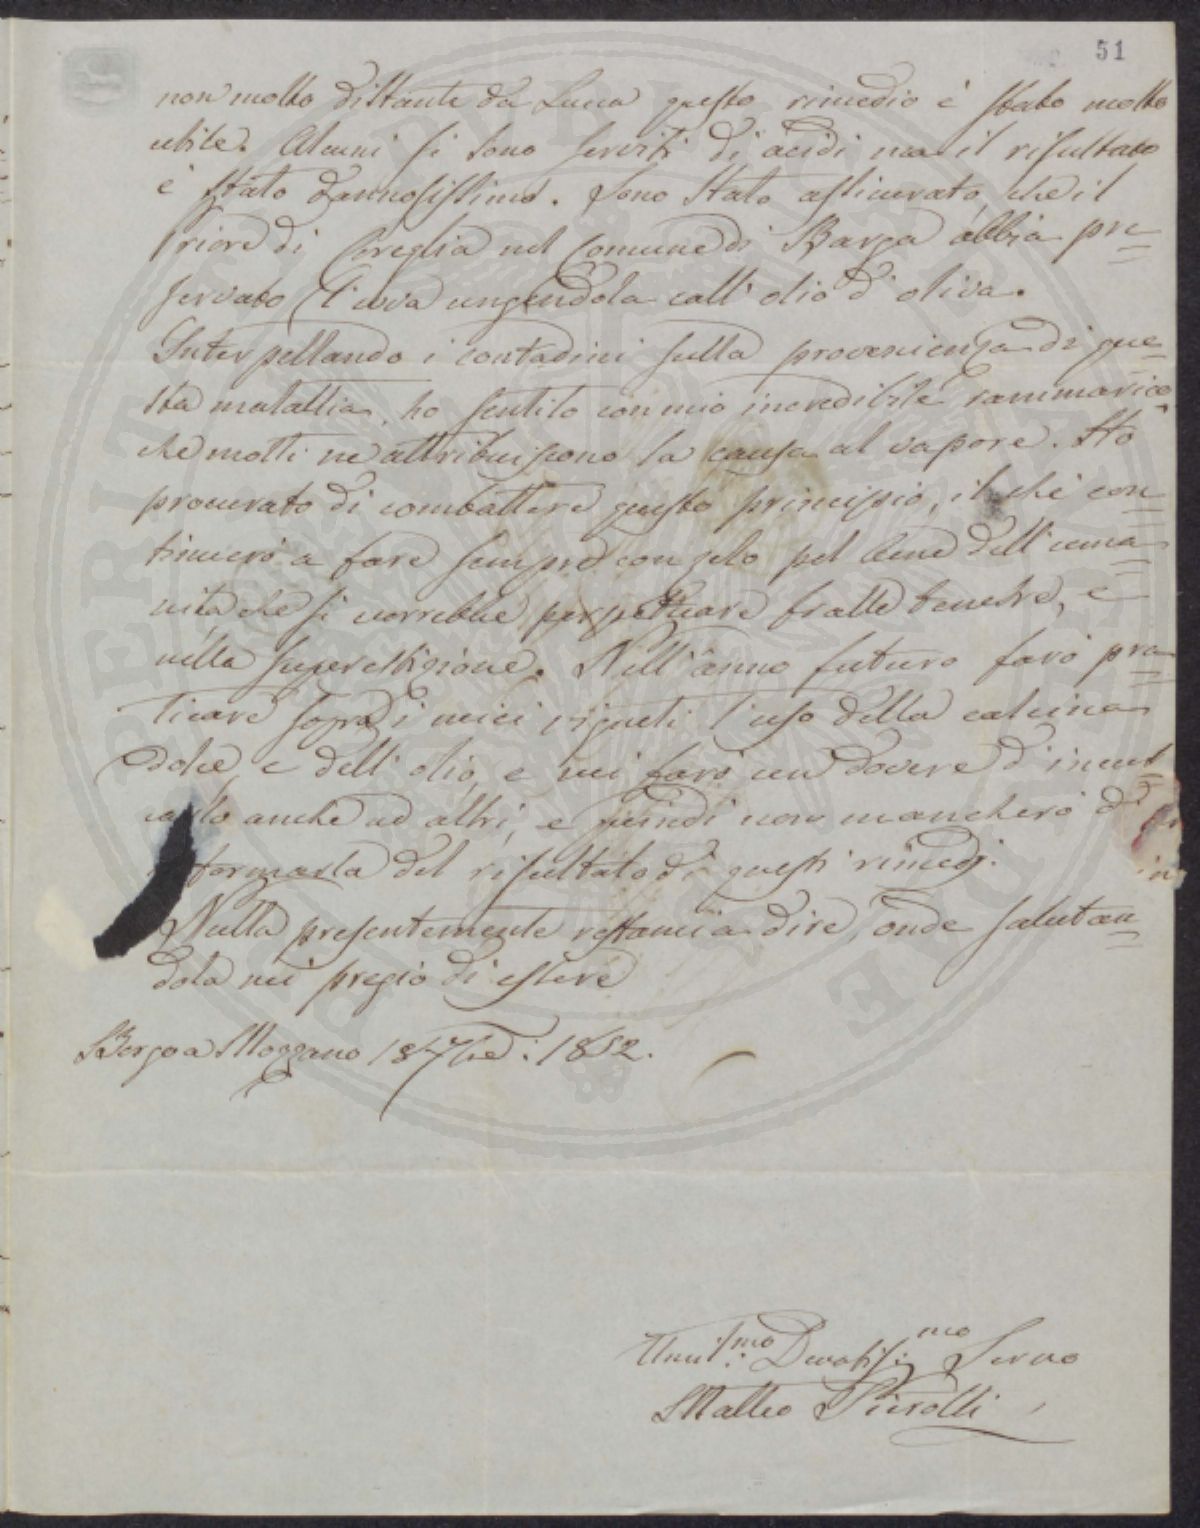 51
non molto distante da Lucca questo rimedio è stato molto
utile. Alcuni si sono serviti di acidi ma il risultato
è stato dannosissimo. Sono stato assicurato, che il
Priore di Coreglia nel Comune di Barga abbia pre=
servato l'uva ungendola coll'olio d'oliva.
Interpellando i contadini sulla provenienza di que=
sta malattia, ho sentito con mio incredibile rammarico,
che molti ne attribuiscono la causa al vapore. Ho
procurato di combattere questo principio, il che con=
tinuerò a fare sempre con zelo pel bene dell'uma=
nità, che si vorrebbe perpetuare fralle tenebre, e
nella superstizione. Nell'anno futuro farò pra=
ticare sopra i miei vigneti l'uso della calcina
dolce, e dell'olio, e mi farò un dovere d'incul
carlo anche ad altri, e quindi non mancherò d'
in
formarla del risultato di questi rimedj.
Nulla presentemente restami a dire, onde salutan=
dola mi pregio di essere
Borgo a Mozzano 18 7bre: 1852.
Umilmo: Devotis:mo Servo
Matteo Pierotti